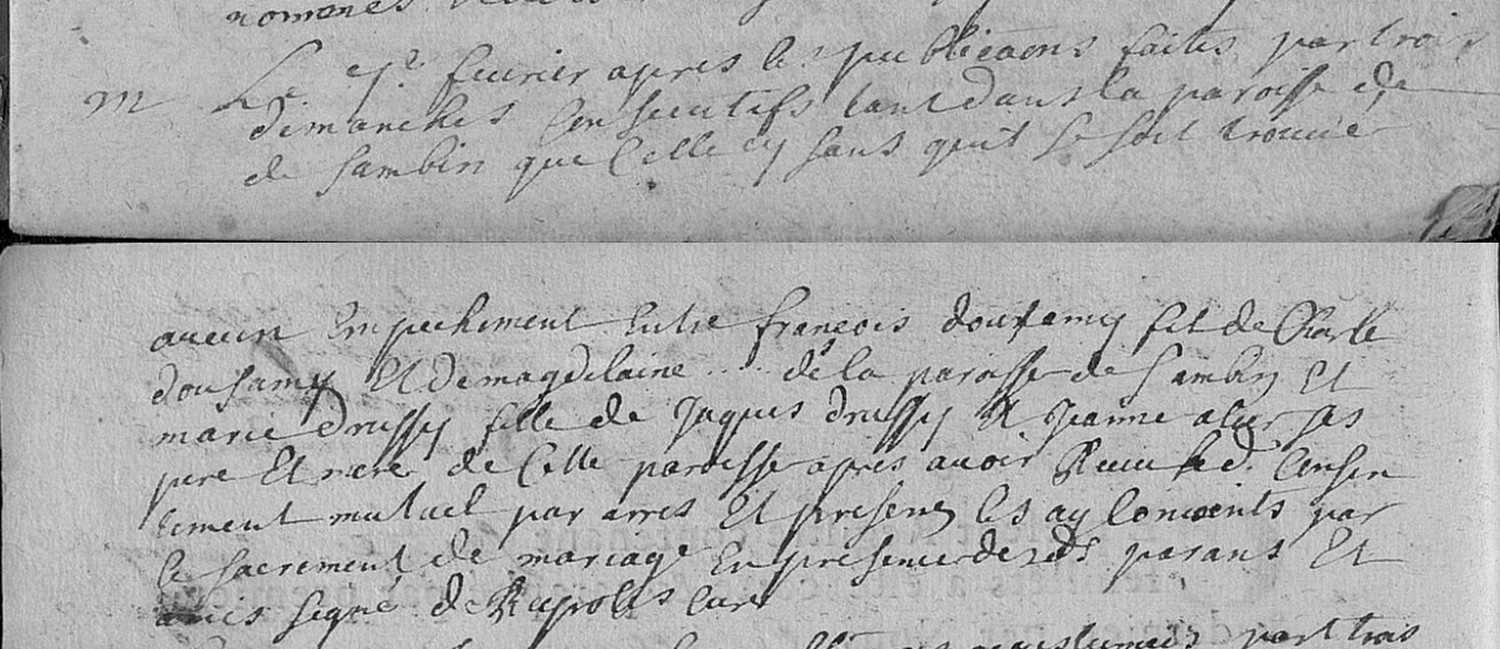 m Le 7e feurier apres les publicaons faites par trois
dimanches Consecutifs tant dans la paroisse de
de Sambin que Celle cy sans quil se soit trouué
aucun Empechement Entre françois doufamy fil de Charle
doufamy Et de magdelaine .... de la paroisse de Sambin Et
marie Drussy fille de Jaques Drussy Et Jeanne ses
pere Et mere de Celle paroisse apres auoir Receu led. Consen
tement mutuel par arres Et presens les ay Conioints par
le sacrement de mariage En presence de sds parans Et
amis signé de curé
par trois